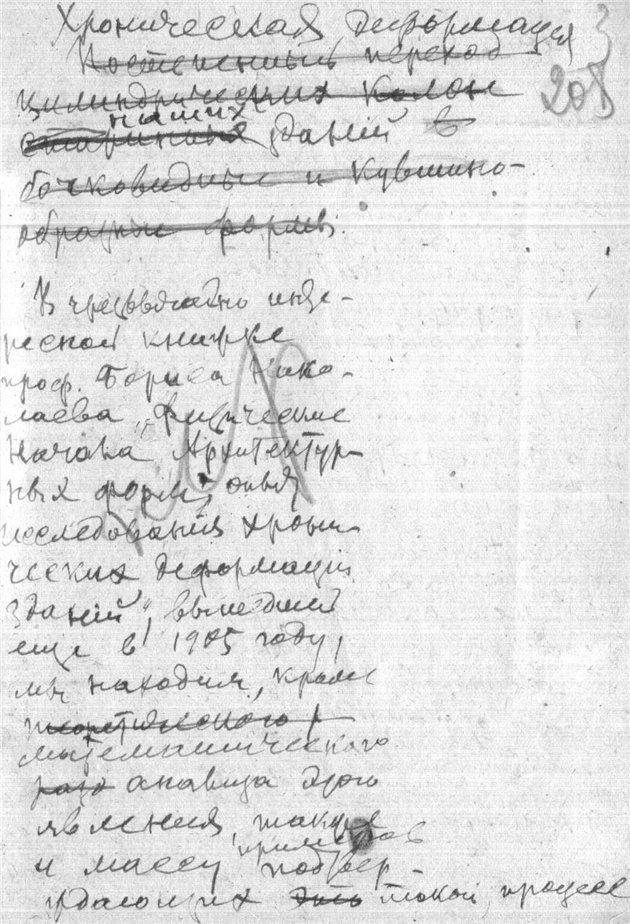 Хроническая деформация
208
Постепенный переход
цилиндрических колонн
наших
старинных зданий в
бочковидные и кувшино-
образные формы.
В чрезвычайно инте-
ресной книжке
проф. Бориса Нико-
лаева „Физические
начала Архитектур-
ных форм, опыт
исследования хрони-
ческих деформаций
зданий", вышедшей
еще в 1905 году,
мы находим, кроме
теоретического
математического
анализа этого
явления, также
примеров
и массу подтвер-
ждающих такой процесс